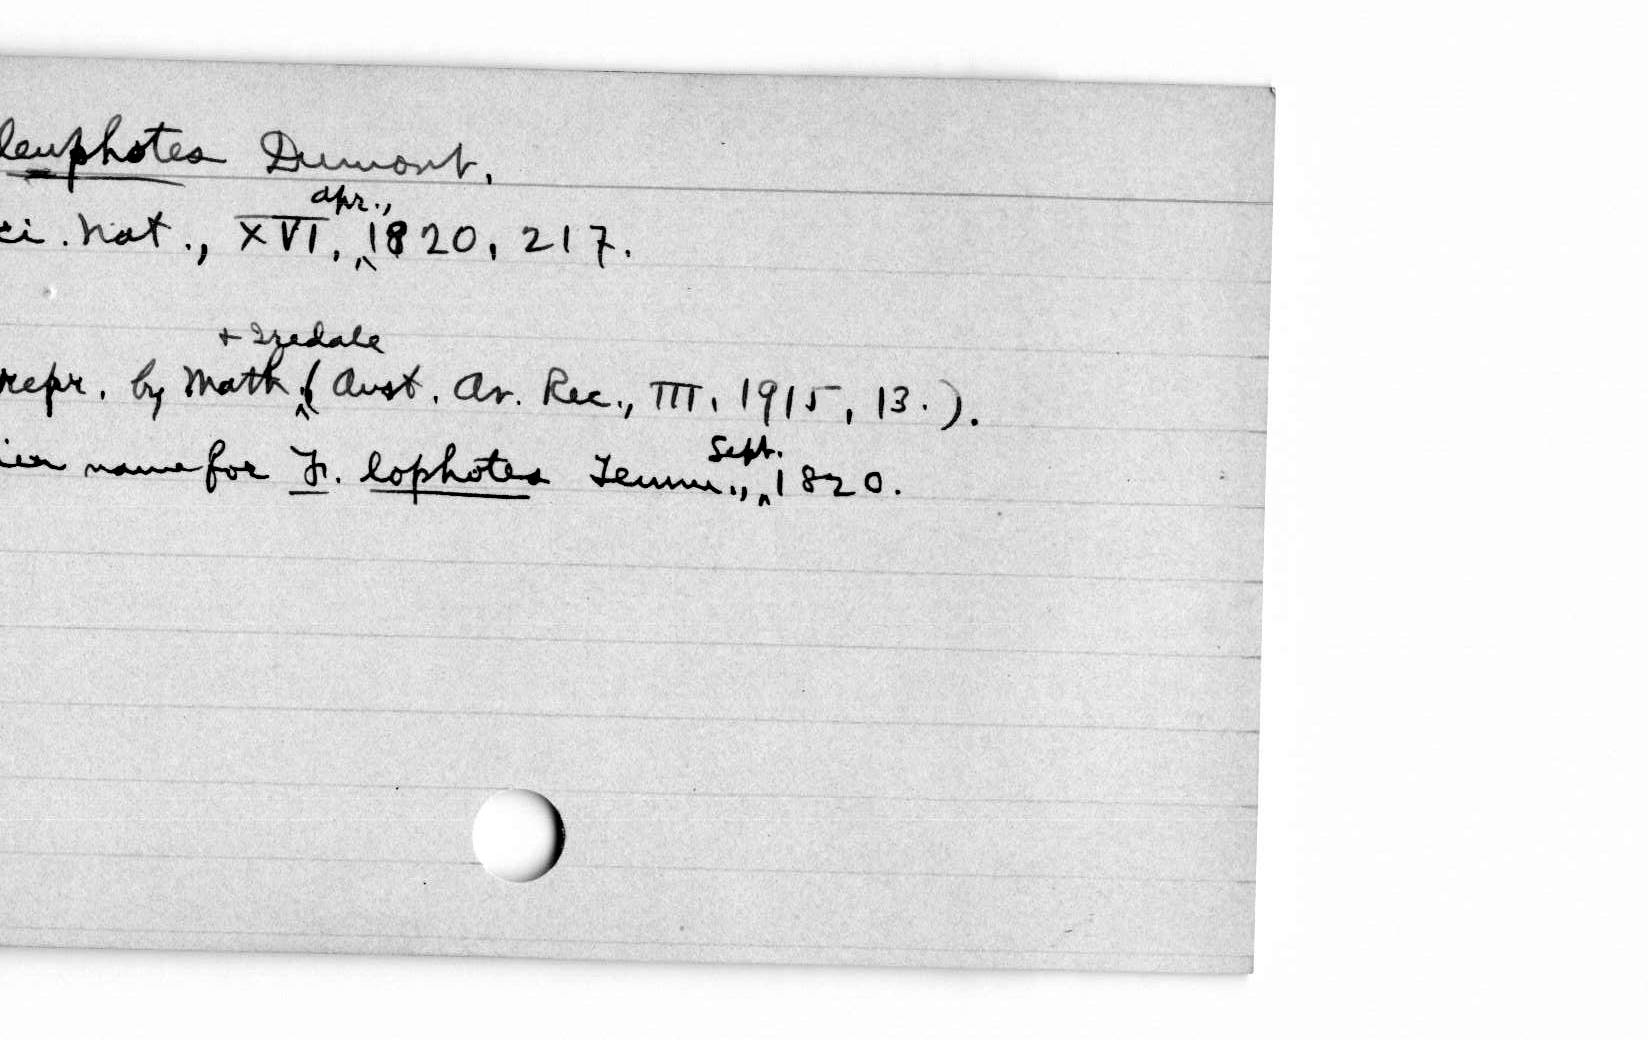 leuphotes Dumont.
ci. Nat., XVI, apr., 1820, 217.
repr. by Math. + Iredale (Aust. Av. Rec., III, 1915, 13.).
ier name for F. lophotes Temm., Sept. 1820.